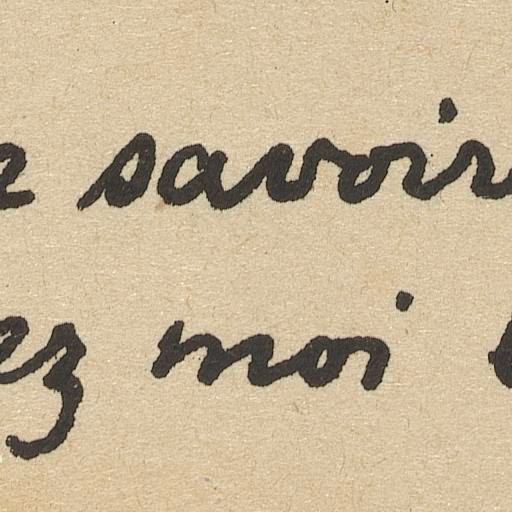 savoir
ez moi